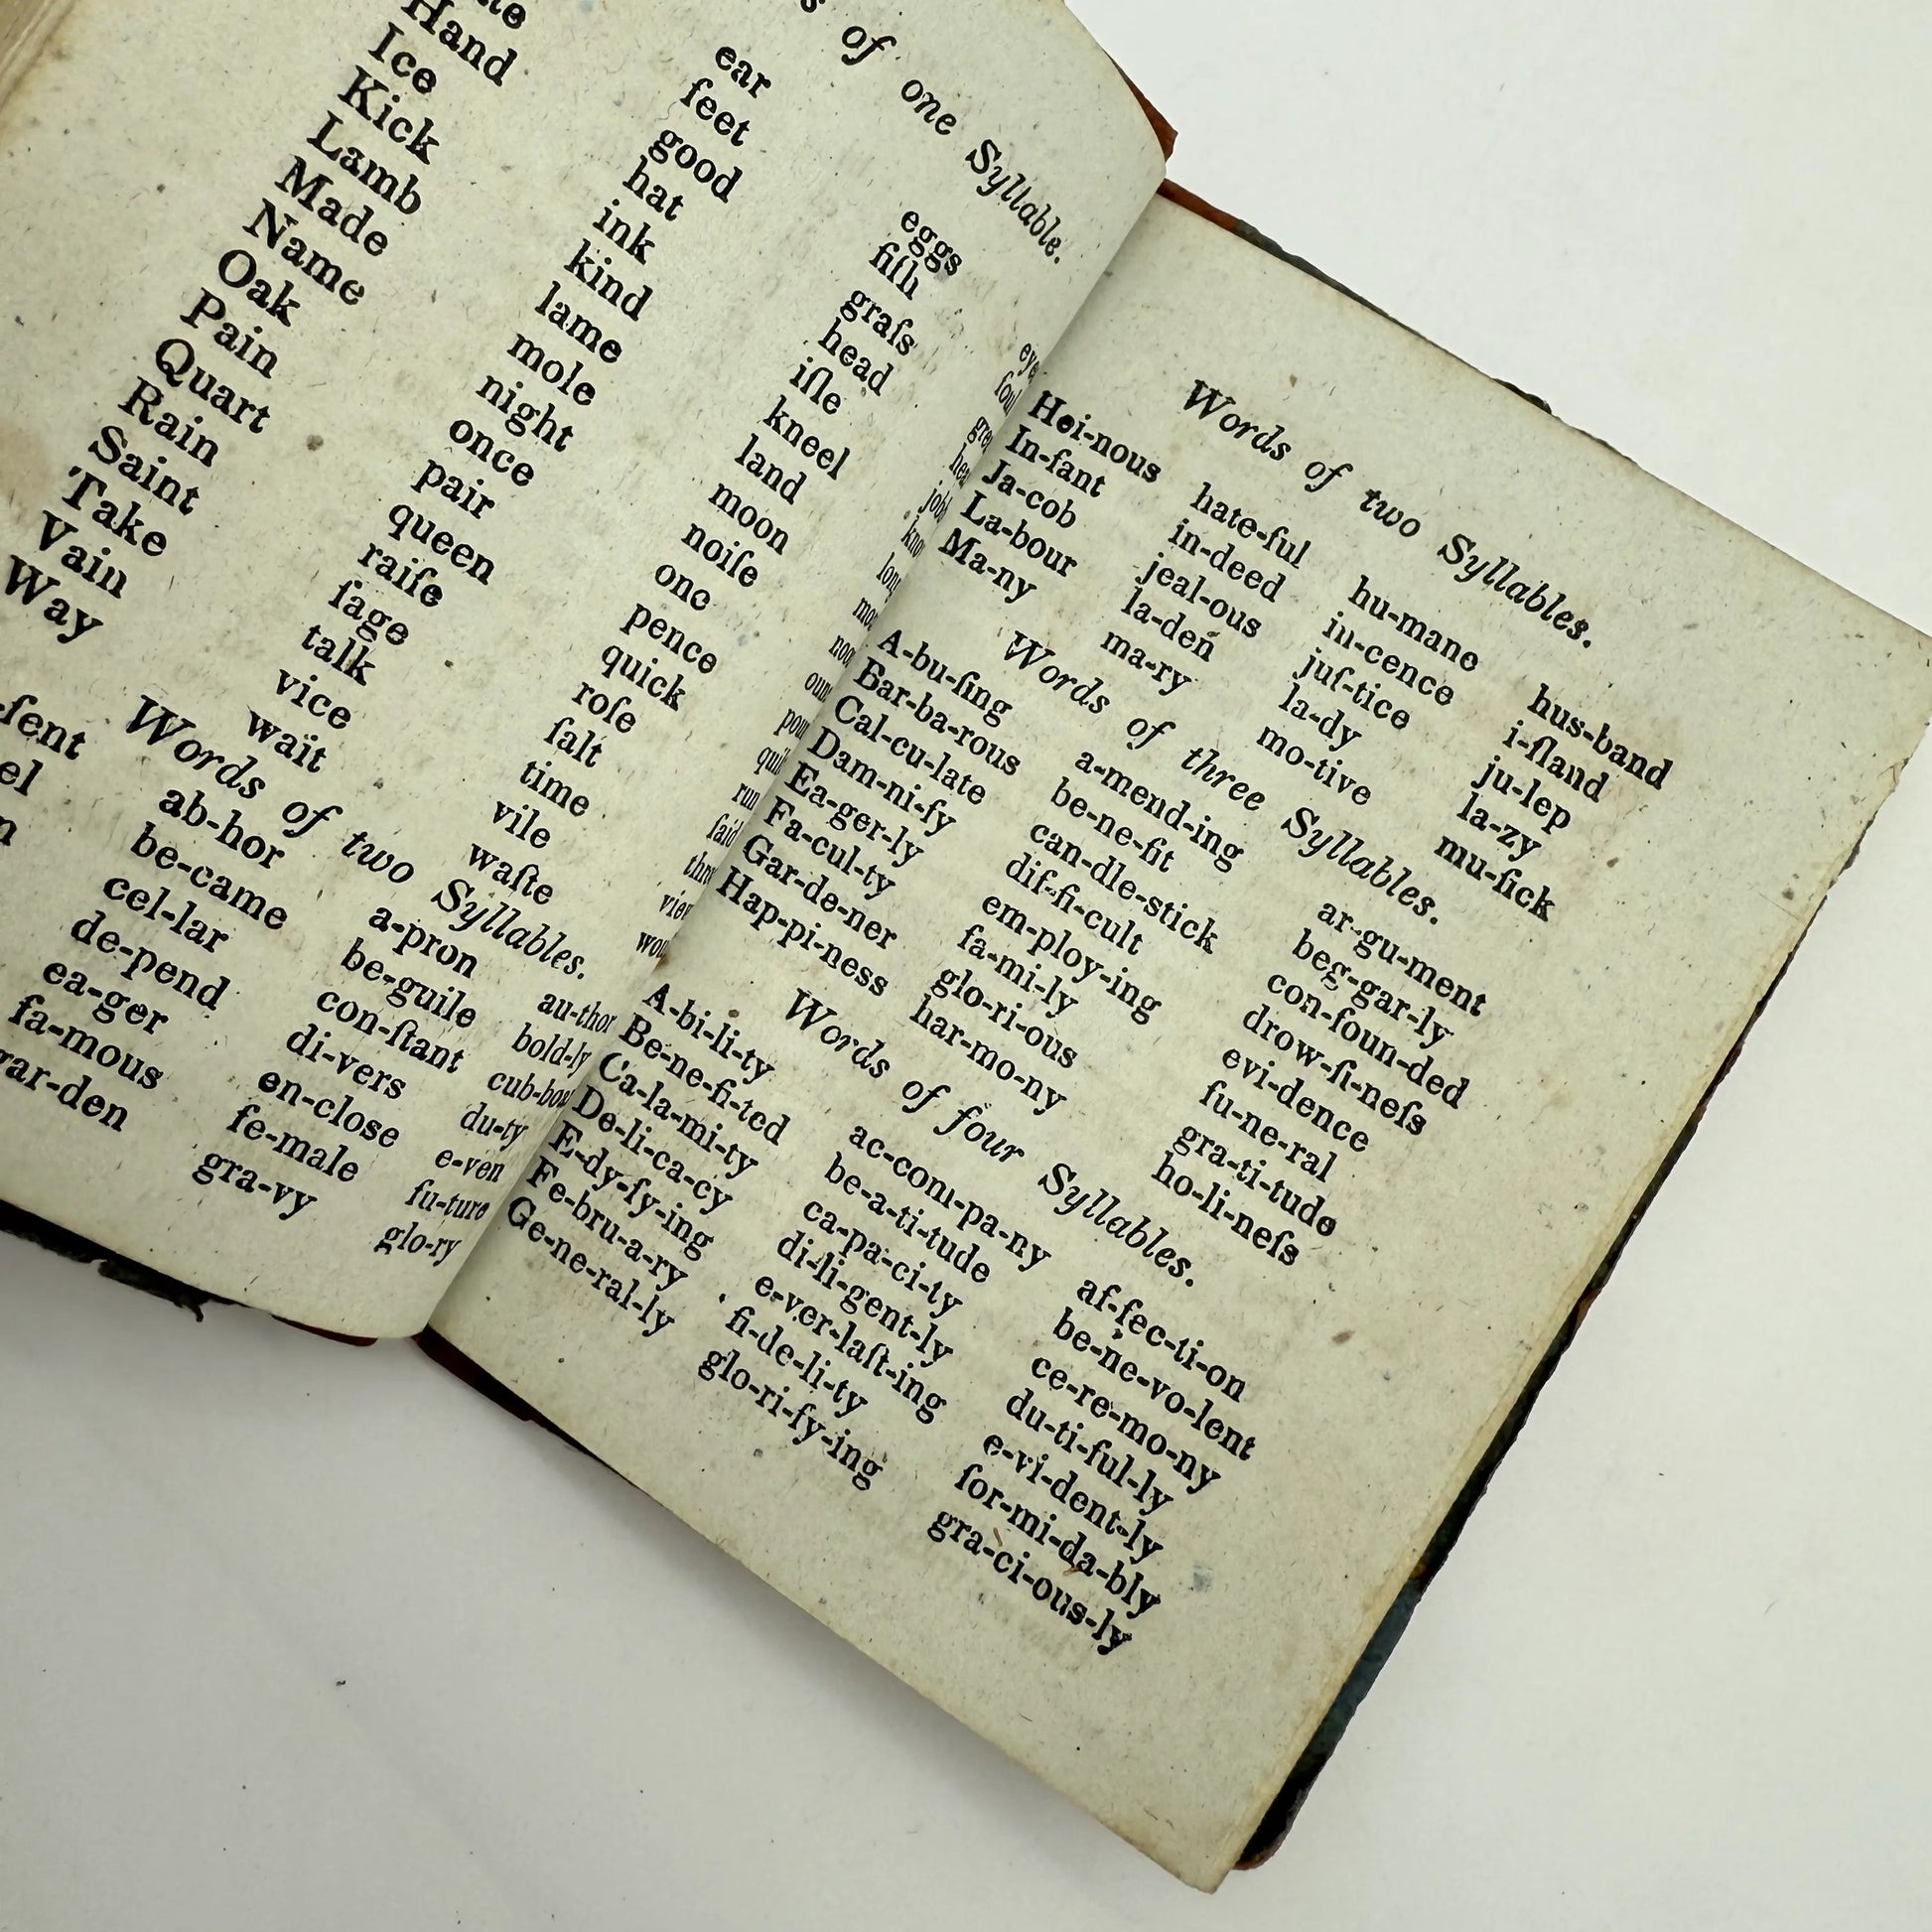 of one Syllable.
ear eggs
feet fiſh
good graſs
Hand hat head
Ice ink iſle
Kick kind kneel
Lamb lame land
Made mole moon
Name night noiſe
Oak once one
Pain pair pence
Quart queen quick
Rain raiſe roſe
Saint ſage ſalt
Take talk time
Vain vice vile
Way wait waſte
Words of two Syllables.
ab-hor a-pron au-thor
be-came be-guile bold-ly
cel-lar con-ſtant
de-pend di-vers du-ty
ea-ger en-close e-ven
fa-mous fe-male fu-ture
gar-den gra-vy glo-ry
Words of two Syllables.
Hei-nous hate-ful hu-mane hus-band
In-fant in-deed in-cence i-ſland
Ja-cob jeal-ous juſ-tice ju-lep
La-bour la-den la-dy la-zy
Ma-ny ma-ry mo-tive mu-ſick
Words of three Syllables.
A-bu-ſing a-mend-ing ar-gu-ment
Bar-ba-rous be-ne-fit beg-gar-ly
Cal-cu-late can-dle-stick con-foun-ded
Dam-ni-fy dif-fi-cult drow-ſi-neſs
Ea-ger-ly em-ploy-ing evi-dence
Fa-cul-ty fa-mi-ly fu-ne-ral
Gar-de-ner glo-ri-ous gra-ti-tude
Hap-pi-ness har-mo-ny ho-li-neſs
Words of four Syllables.
A-bi-li-ty ac-com-pa-ny af-fec-ti-on
Be-ne-fi-ted be-a-ti-tude be-ne-vo-lent
Ca-la-mi-ty ca-pa-ci-ty ce-re-mo-ny
De-li-ca-cy di-li-gent-ly du-ti-ful-ly
E-dy-fy-ing e-ver-laſt-ing e-vi-dent-ly
Fe-bru-a-ry fi-de-li-ty for-mi-da-bly
Ge-ne-ral-ly glo-ri-fy-ing gra-ci-ous-ly